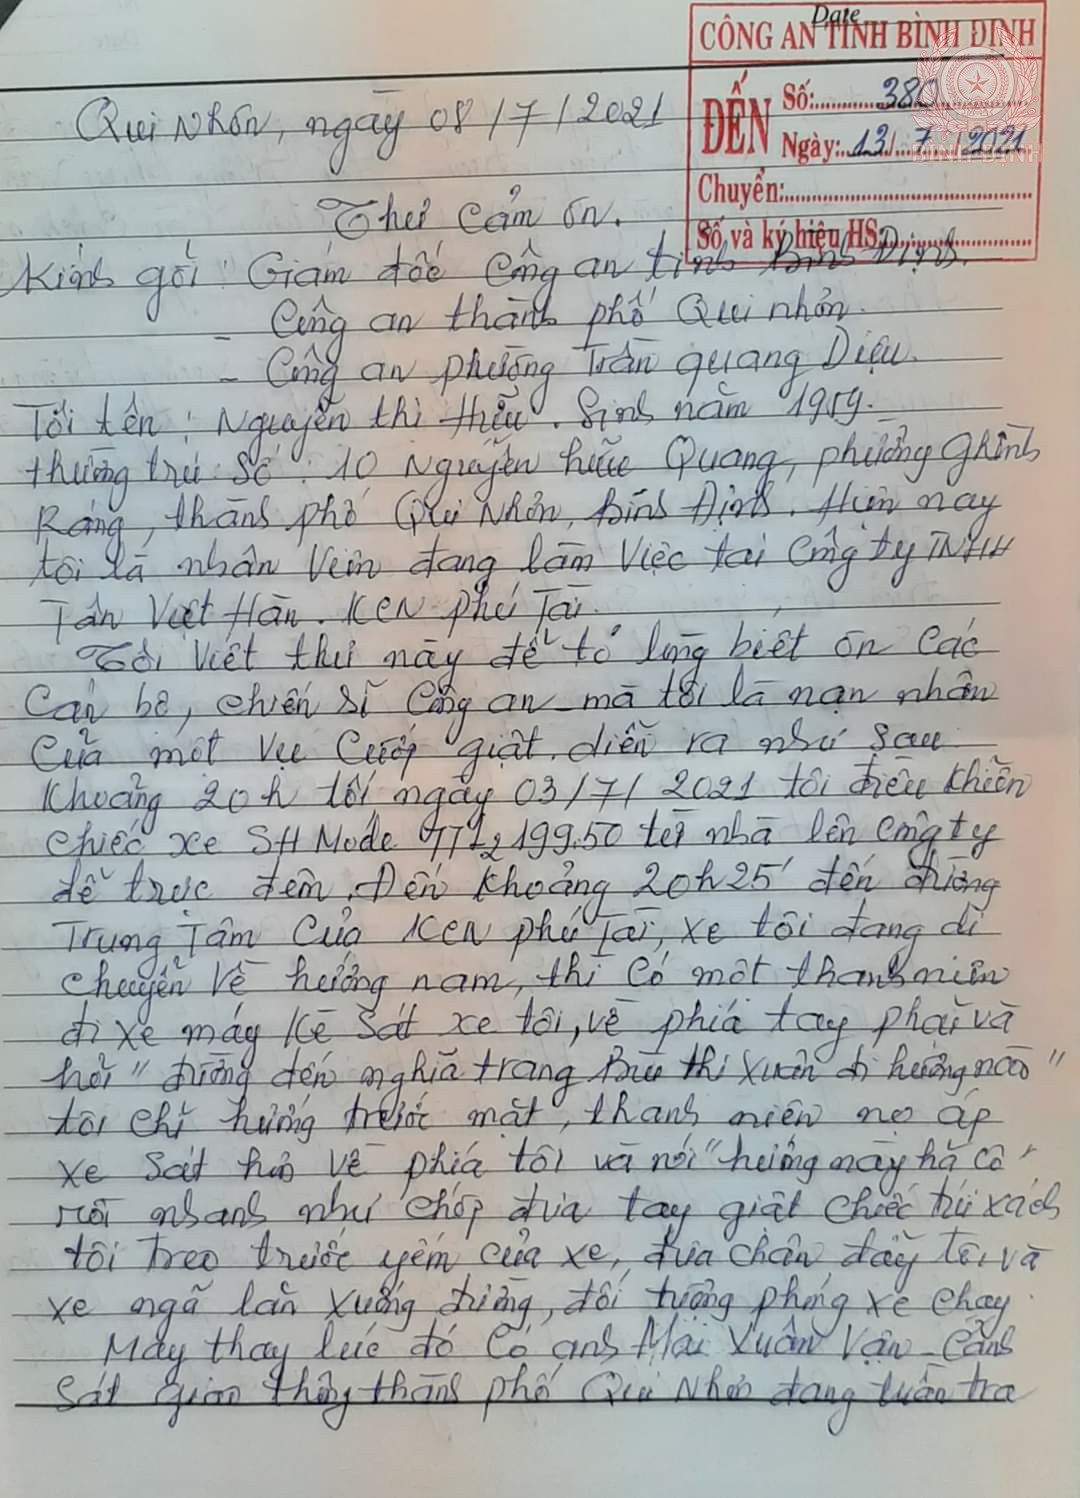 Date
CÔNG AN TỈNH BÌNH ĐỊNH
ĐẾN
Số: 380
Ngày: 13/7/2021
Chuyển:
Số và ký hiệu HS:
Qui Nhơn, ngày 08/7/2021
Thư cảm ơn.
Kính gởi: Giám đốc Công an tỉnh Bình Định.
- Công an thành phố Qui nhơn.
- Công an phường Trần quang Diệu.
Tôi tên: Nguyễn thị Hiếu. Sinh năm 1959.
thường trú: Số: 10 Nguyễn hữu Quang, phường Ghềnh
Ráng, thành phố Qui Nhơn, Bình Định. Hiện nay
tôi là nhân viên đang làm việc tại Công ty TNHH
Tân Việt Hàn. KCN phú Tài.
Tôi viết thư này để tỏ lòng biết ơn các
Cán bộ, chiến sĩ Công an mà tôi là nạn nhân
của một vụ Cướp giật, diễn ra như sau
Khoảng 20h tối ngày 03/7/2021 tôi điều khiển
chiếc xe SH Mode 77L2 199.50 từ nhà lên Công ty
để trực đêm. Đến Khoảng 20h25' đến đường
Trung Tâm của KCN phú Tài, xe tôi đang di
chuyển về hướng nam, thì có một thanh niên
đi xe máy Kè sát xe tôi, về phía tay phải và
hỏi "đường đến nghĩa trang Bùi thị Xuân đi hướng nào"
tôi chỉ hướng trước mặt, thanh niên nọ áp
xe sát hơn về phía tôi và nói "hướng này hả cô"
rồi nhanh như chớp đưa tay giật chiếc túi xách
tôi treo trước yếm của xe, đưa chân đẩy tôi và
xe ngã lăn xuống đường, đối tượng phóng xe chạy.
May thay lúc đó có anh Mai Xuân Vạn - Cảnh
sát giao thông thành phố Qui Nhơn đang tuần tra